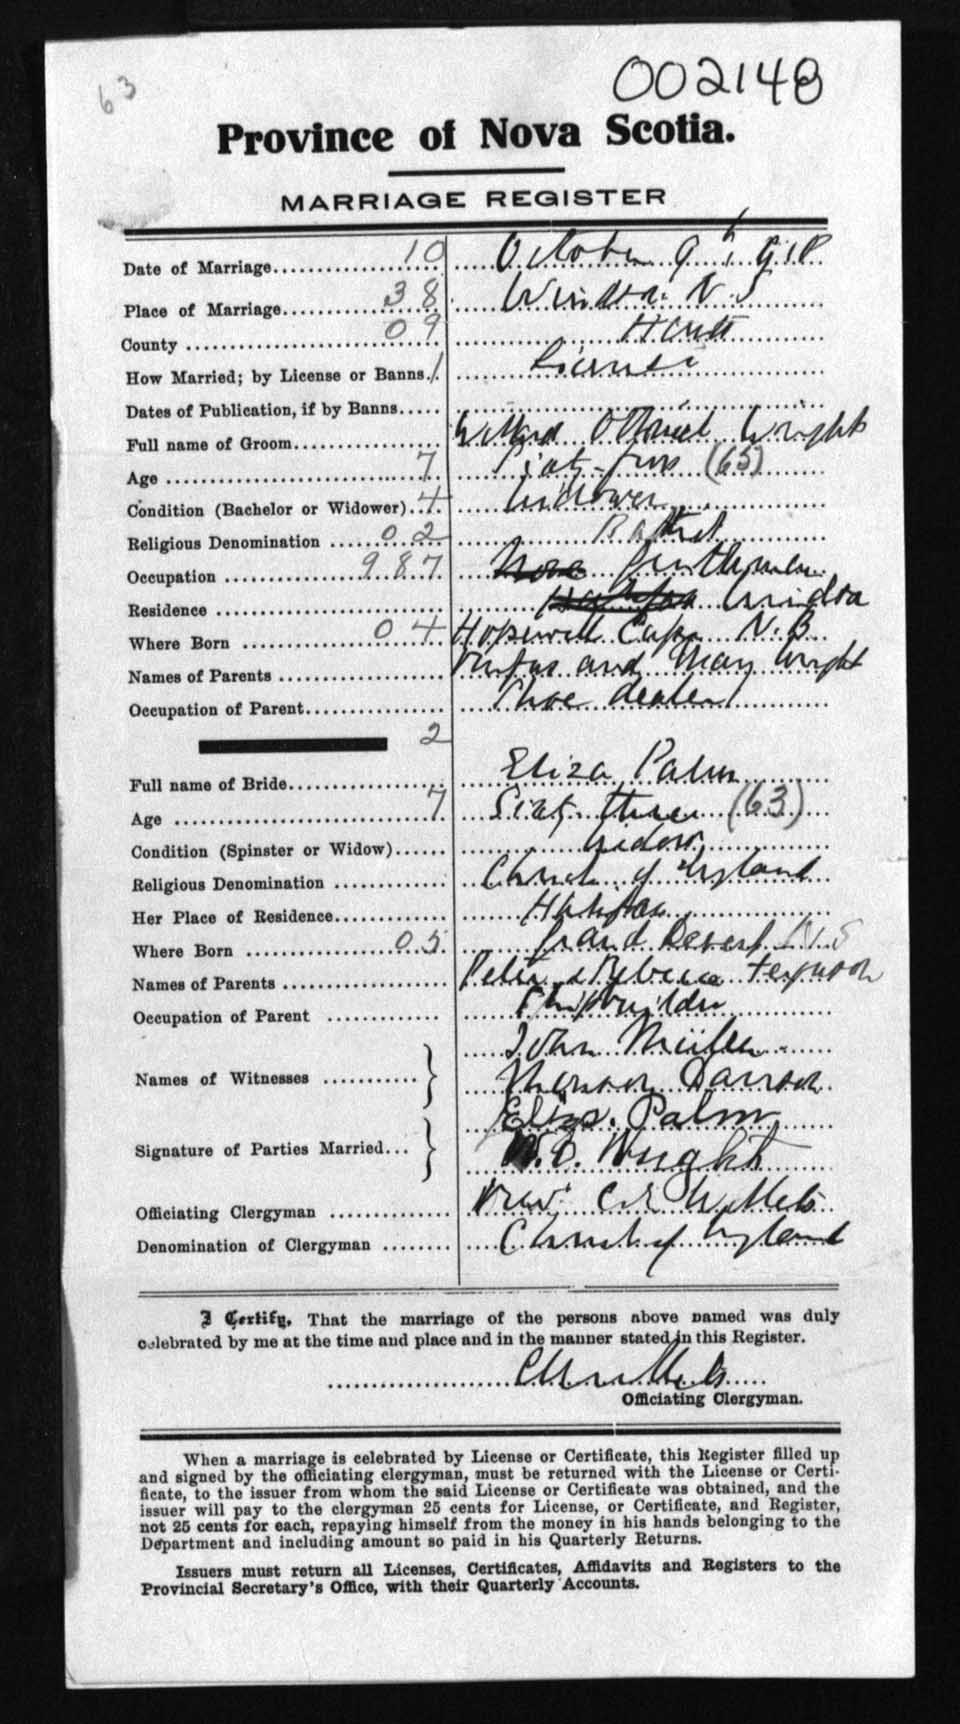 63
002148
Province of Nova Scotia.
MARRIAGE REGISTER
Date of Marriage 10 October 9th 1918
Place of Marriage 38 Windsor N.S
County 09 Hants
How Married; by License or Banns 1 License
Dates of Publication, if by Banns
Full name of Groom Willard Wright
Age 7 Sixty-five (65)
Condition (Bachelor or Widower) 4 Widower
Religious Denomination 02 Baptist
Occupation 987 None Gentleman
Residence Halifax Windsor
Where Born 04 Hopewell Cape N.B.
Names of Parents Rufus and Mary Wright
Occupation of Parent Shoe dealer
2
Full name of Bride Eliza Palm
Age 7 Sixty three (63)
Condition (Spinster or Widow) Widow
Religious Denomination Church of England
Her Place of Residence Halifax
Where Born 05 Grand Desert N.S
Names of Parents Peter & Rebecca Ferguson
Occupation of Parent Shipbuilder
Names of Witnesses John
Darrach
Signature of Parties Married Eliza. Palm
Wright
Officiating Clergyman Rev. C E Willets
Denomination of Clergyman Church of England
I Certify, That the marriage of the persons above named was duly
celebrated by me at the time and place and in the manner stated in this Register.
CE Willets
Officiating Clergyman.
When a marriage is celebrated by License or Certificate, this Register filled up
and signed by the officiating clergyman, must be returned with the License or Certi-
ficate, to the issuer from whom the said License or Certificate was obtained, and the
issuer will pay to the clergyman 25 cents for License, or Certificate, and Register,
not 25 cents for each, repaying himself from the money in his hands belonging to the
Department and including amount so paid in his Quarterly Returns.
Issuers must return all Licenses, Certificates, Affidavits and Registers to the
Provincial Secretary's Office, with their Quarterly Accounts.